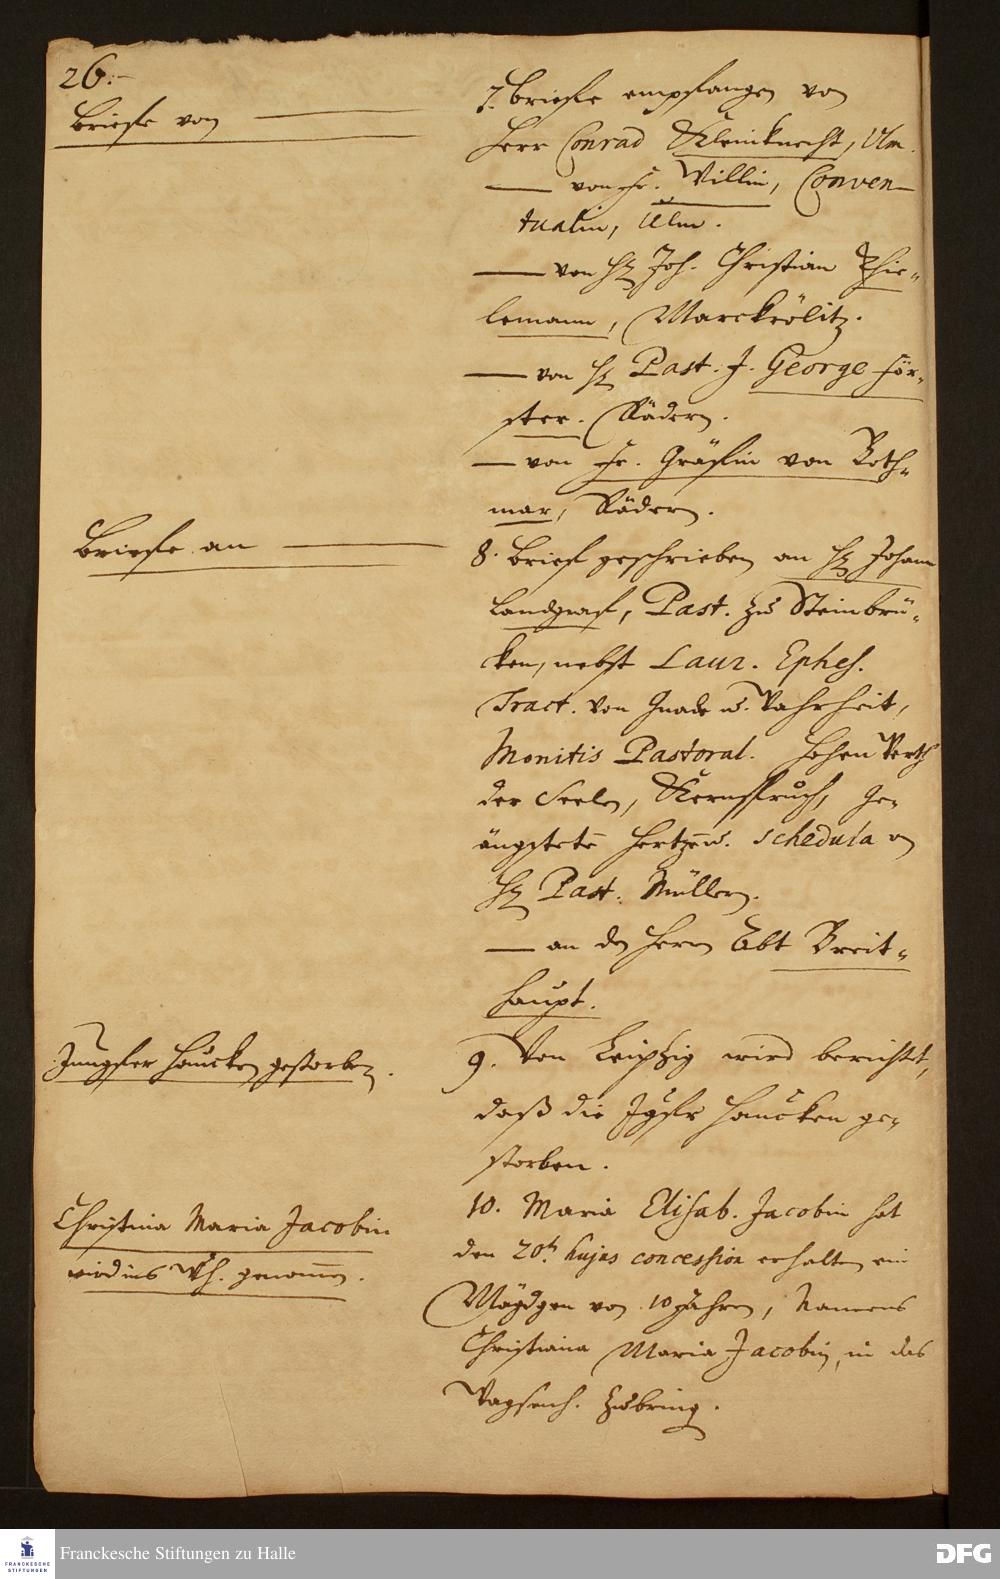 26.
Briefe von
7. Briefe empfangen von
Herr Conrad Kleinknecht, Ulm.
von Fr. Willin, Conven-
tualin, Ulm.
von H. Joh. Christian Thie-
lemann, Marckrölitz.
von H. Past. J. George För-
ster. Rädern.
von Fr. Gräfin von Both-
mar, Rädern.
Briefe an
8. Brief geschrieben an H. Johann
Landgraf, Past. zu Steinbrü-
cken, nebst Laur. Ephes.
Tract. von Gnade u. Wahrheit,
Monitis Pastoral. Hohen Werth
der Seelen, Kernspruch, Ge-
ängstete Hertzen. Schedula
H. Past. Müllern.
an den Herrn Abt Breit-
haupt.
Jungfer Haucken gestorben.
9. Von Leipzig wird berichtet,
daß die Jgfr Haucken ge-
storben.
Christina Maria Jacobin
wird ins Wh. genommen.
10. Maria Elisab. Jacobin hat
den 20t. hujus concession erhalten ein
Mägdgen von 10 Jahren, Namens
Christiana Maria Jacobin, in das
Waysenh. zubring.
Franckesche Stiftungen zu Halle
FRANCKESCHE
STIFTUNGEN
DFG